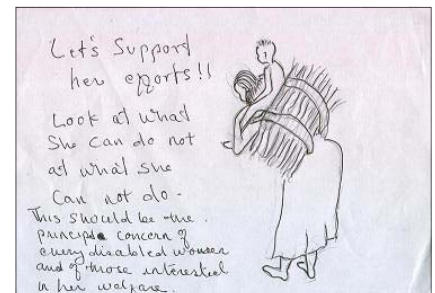 Let's Support
her efforts!!
Look at what
She can do not
at what she
Can not do.
This should be the
principle concern of
every disabled women
and of those interested
in her welfare.